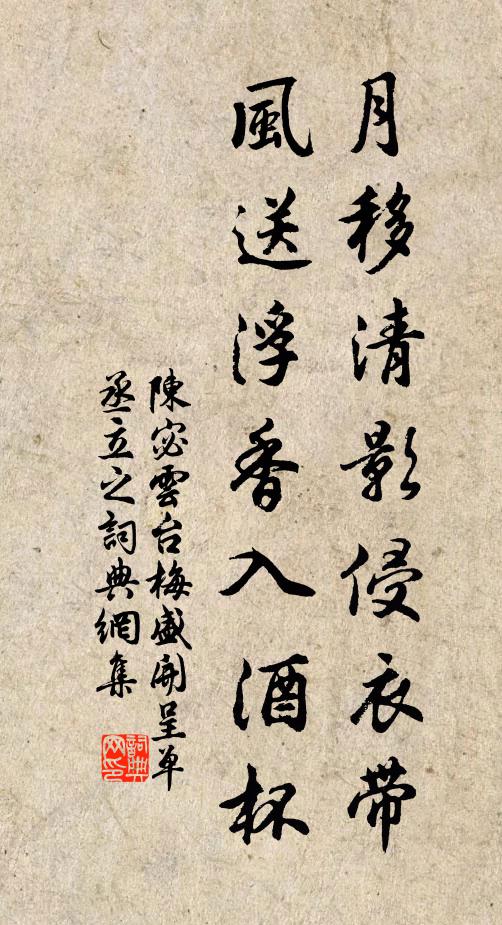 月移清影侵衣带
風送浮香入酒杯
陳宓雲台梅盛開呈单
丞立之詞典網集
詞典网印